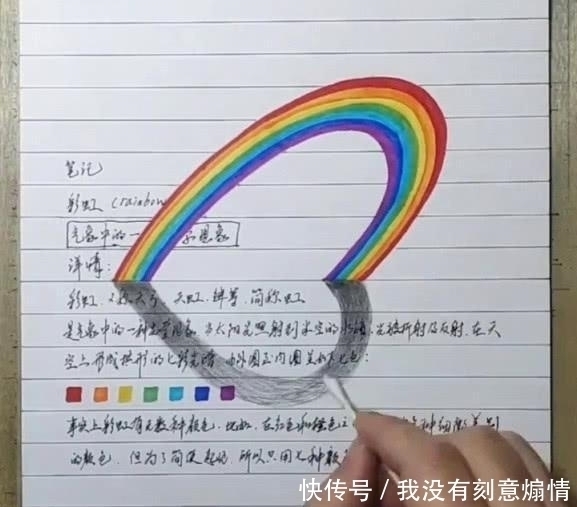 笔记
彩虹 (rainbow
气象中的一
详情:
彩虹,又称天弓、天虹、绛等,简称虹
是气象中的一种光学现象,当太阳光照射到半空的水滴,光线折射及反射,在天
空上形成拱形的七彩光谱,由外圈至内圈共如下七色:
事实上彩虹有无数种颜色,比如,在红色和橙色之 种细微差别
的颜色,但为了简便起见,所以只用七种颜
快传号 / 我没有刻意煽情